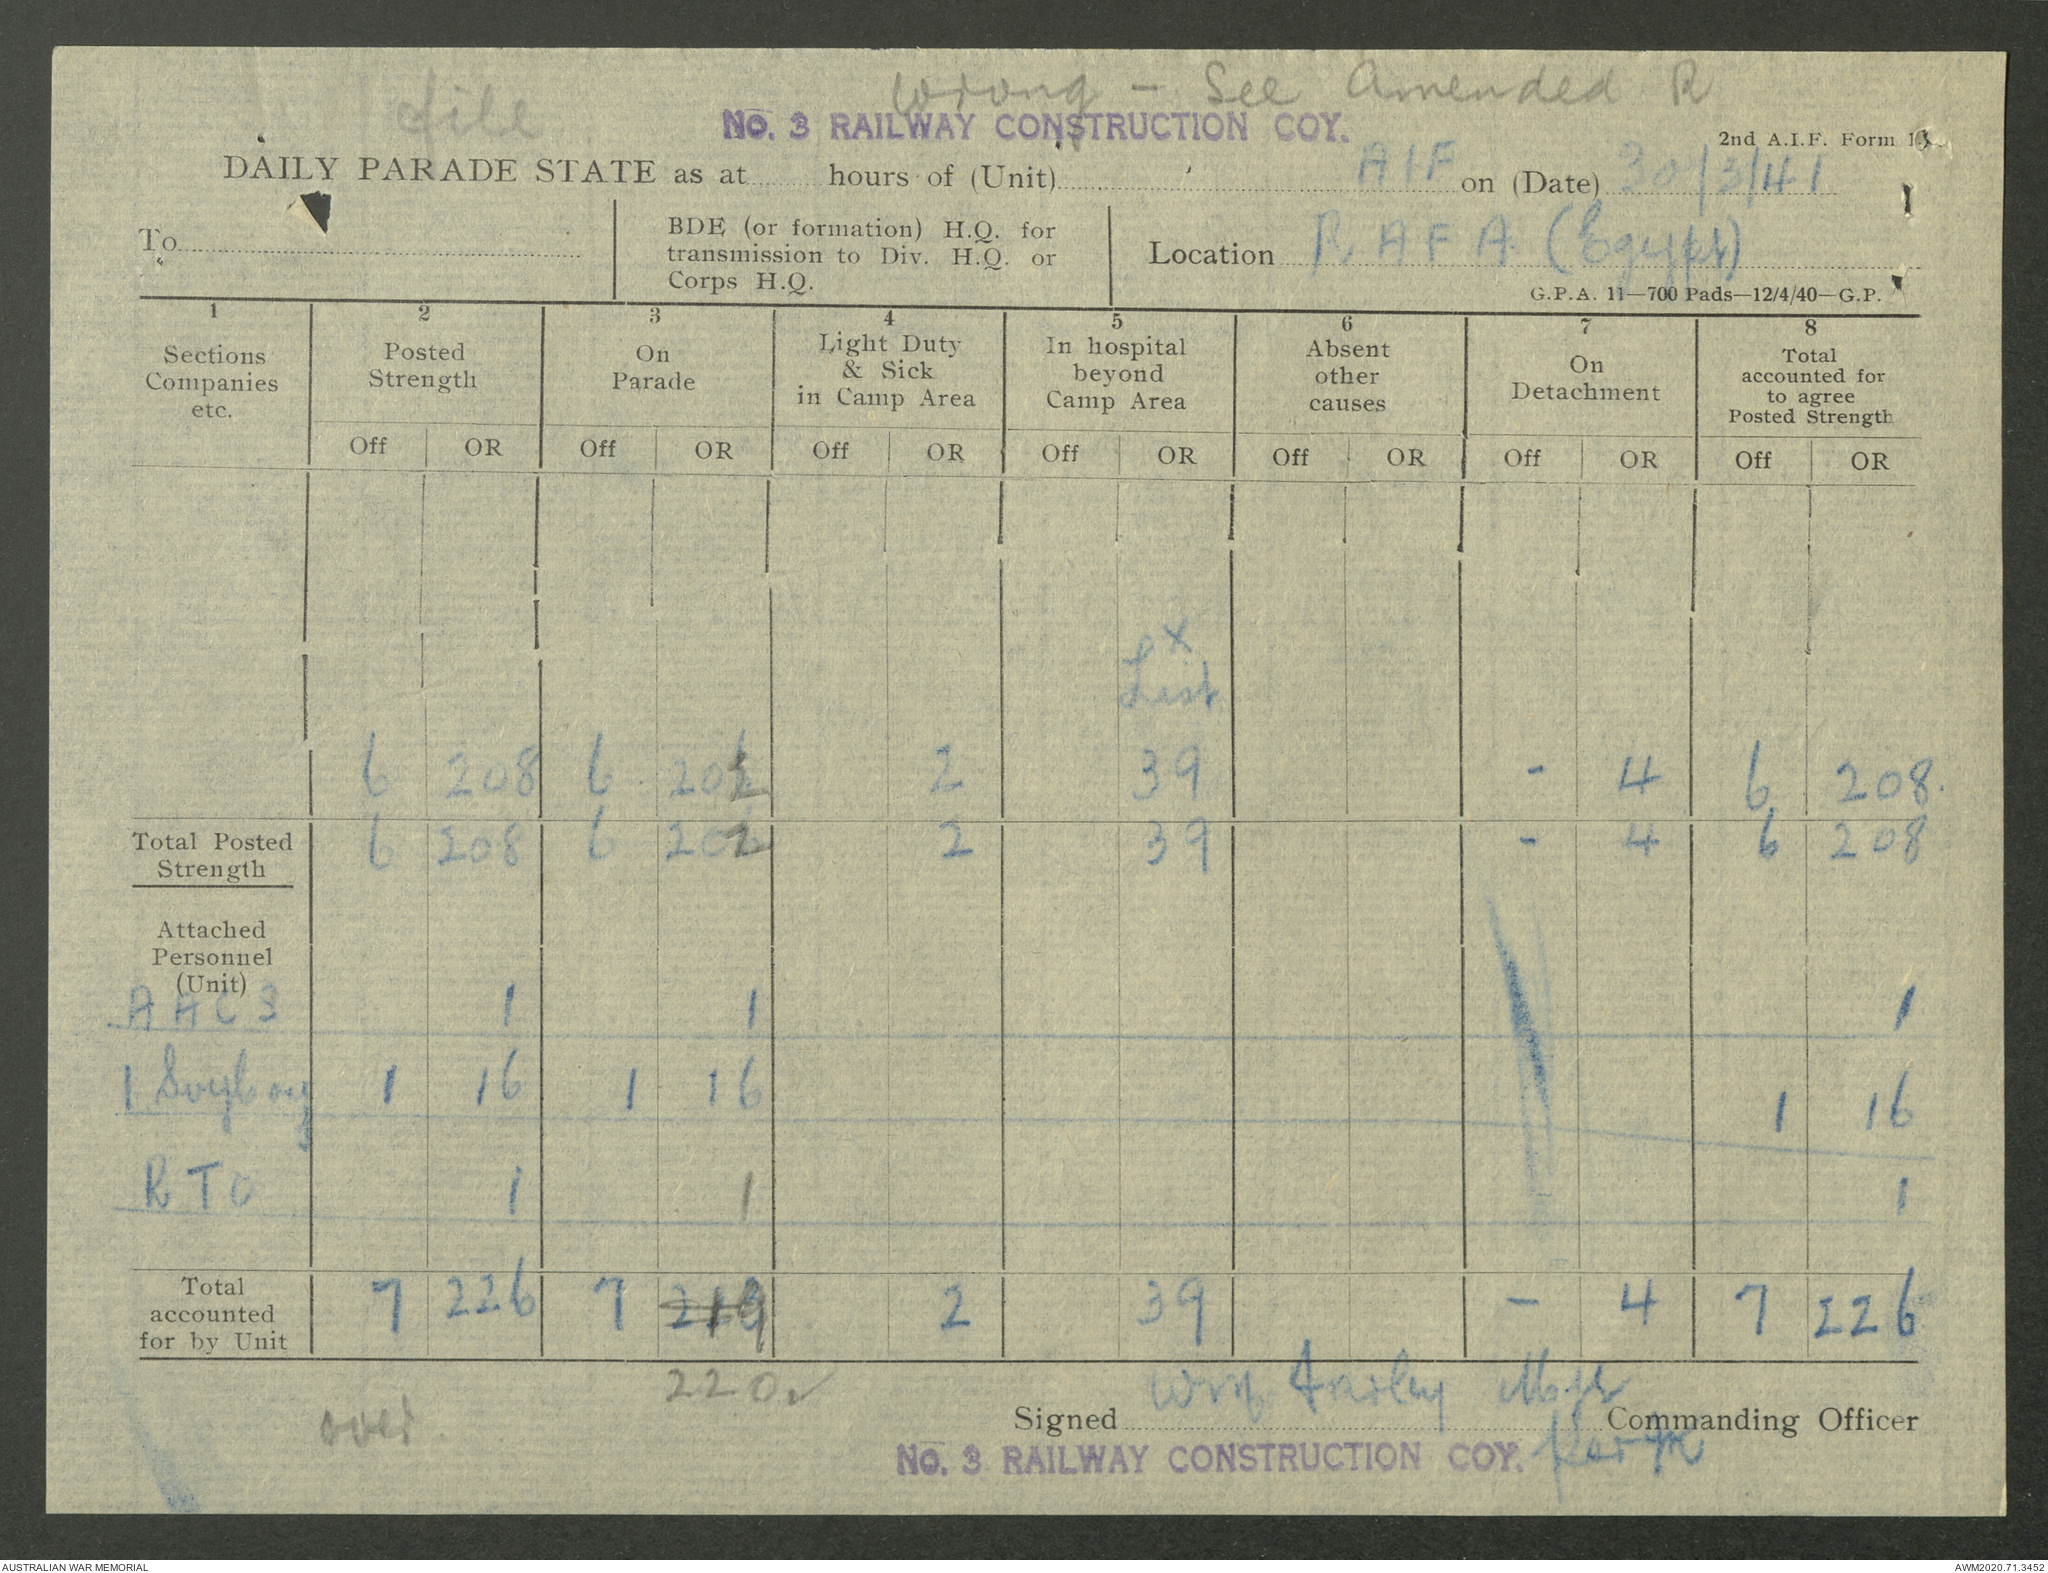 file
Wrong - See Amended R
No. 3 RAILWAY CONSTRUCTION COY.
2nd A.I.F. Form
DAILY PARADE STATE as at ........ hours of (Unit) ........ AIF on (Date) 30/3/41
To ........ BDE (or formation) H.Q. for transmission to Div. H.Q. or Corps H.Q. Location RAFA (Egypt)
G.P.A. 11—700 Pads—12/4/40—G.P.
1 2 3 4 5 6 7 8
Sections Companies etc. Posted Strength On Parade Light Duty & Sick in Camp Area In hospital beyond Camp Area Absent other causes On Detachment Total accounted for to agree Posted Strength
Off OR Off OR Off OR Off OR Off OR Off OR Off OR
x
List
6 208 6 202 2 39 - 4 6 208.
Total Posted Strength 6 208 6 202 2 39 - 4 6 208
Attached Personnel (Unit)
AAC3 1 1 1
1 Svy Coy 1 16 1 16 1 16
RTO 1 1 1
Total accounted for by Unit 7 226 7 219 2 39 - 4 7 226
220 ✓
over
Signed Fairley Major Commanding Officer
No. 3 RAILWAY CONSTRUCTION COY.
AUSTRALIAN WAR MEMORIAL
AWM2020.71.3452